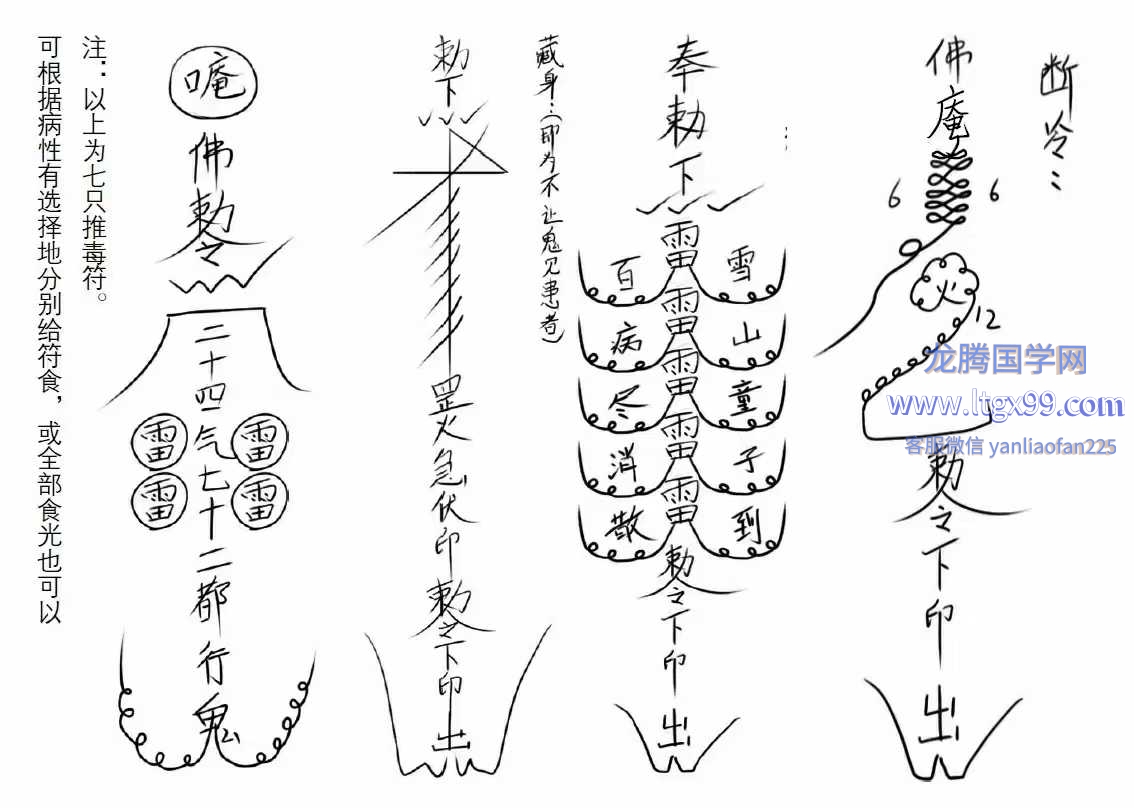 断冷：
佛
庵
6 6
火
12
勅令下印
出
奉勅下
雷雷雷雷雷
雪山童子到
百病尽消散
勅令下印
出
藏身：（即为不让鬼见患者）
勅下
罡火急伏印
勅令下印
出
唵
佛勅令
二十四气七十二都行鬼
雷 雷
雷 雷
注：以上为七只推毒符。
可根据病性有选择地分别给符食，或全部食光也可以
龙腾国学网
www.ltgx99.com
客服微信 yanliaofan225